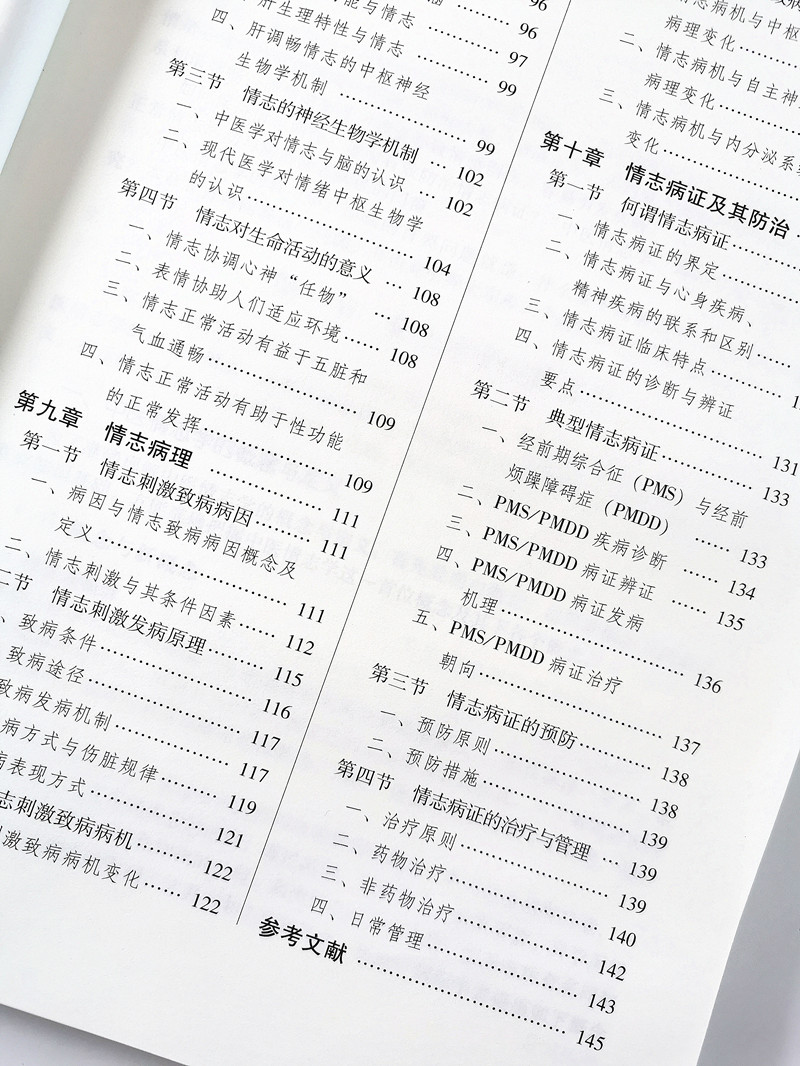 96
能与情志 …… 96
肝生理特性与情志 …… 97
四、肝调畅情志的中枢神经
生物学机制 …… 99
第三节 情志的神经生物学机制 … 99
一、中医学对情志与脑的认识 … 102
二、现代医学对情绪中枢生物学 … 102
的认识 …… 104
第四节 情志对生命活动的意义 … 108
一、情志协调心神“任物” … 108
二、表情协助人们适应环境 …… 108
三、情志正常活动有益于五脏和
气血通畅 …… 109
四、情志正常活动有助于性功能
的正常发挥 …… 109
第九章 情志病理 …… 111
第一节 情志刺激致病病因 …… 111
一、病因与情志致病病因概念及
定义 …… 111
二、情志刺激与其条件因素 …… 112
二节 情志刺激发病原理 …… 115
、致病条件 …… 116
致病途径 …… 117
致病发病机制 …… 117
病方式与伤脏规律 …… 119
病表现方式 …… 121
志刺激致病病机 …… 122
刺激致病病机变化 …… 122
情志病机与中枢
病理变化 ……
二、情志病机与自主神
病理变化 ……
三、情志病机与内分泌系
变化 ……
第十章 情志病证及其防治
第一节 何谓情志病证 ……
一、情志病证的界定 ……
二、情志病证与心身疾病、
精神疾病的联系和区别 ……
三、情志病证临床特点 ……
四、情志病证的诊断与辨证
要点 …… 131
第二节 典型情志病证 …… 133
一、经前期综合征（PMS）与经前
烦躁障碍症（PMDD） …… 133
二、PMS/PMDD 疾病诊断 …… 134
三、PMS/PMDD 病证辨证 …… 135
四、PMS/PMDD 病证发病
机理 …… 136
五、PMS/PMDD 病证治疗
朝向 …… 137
第三节 情志病证的预防 …… 138
一、预防原则 …… 138
二、预防措施 …… 139
第四节 情志病证的治疗与管理 … 139
一、治疗原则 …… 139
二、药物治疗 …… 140
三、非药物治疗 …… 142
四、日常管理 …… 143
参考文献 …… 145